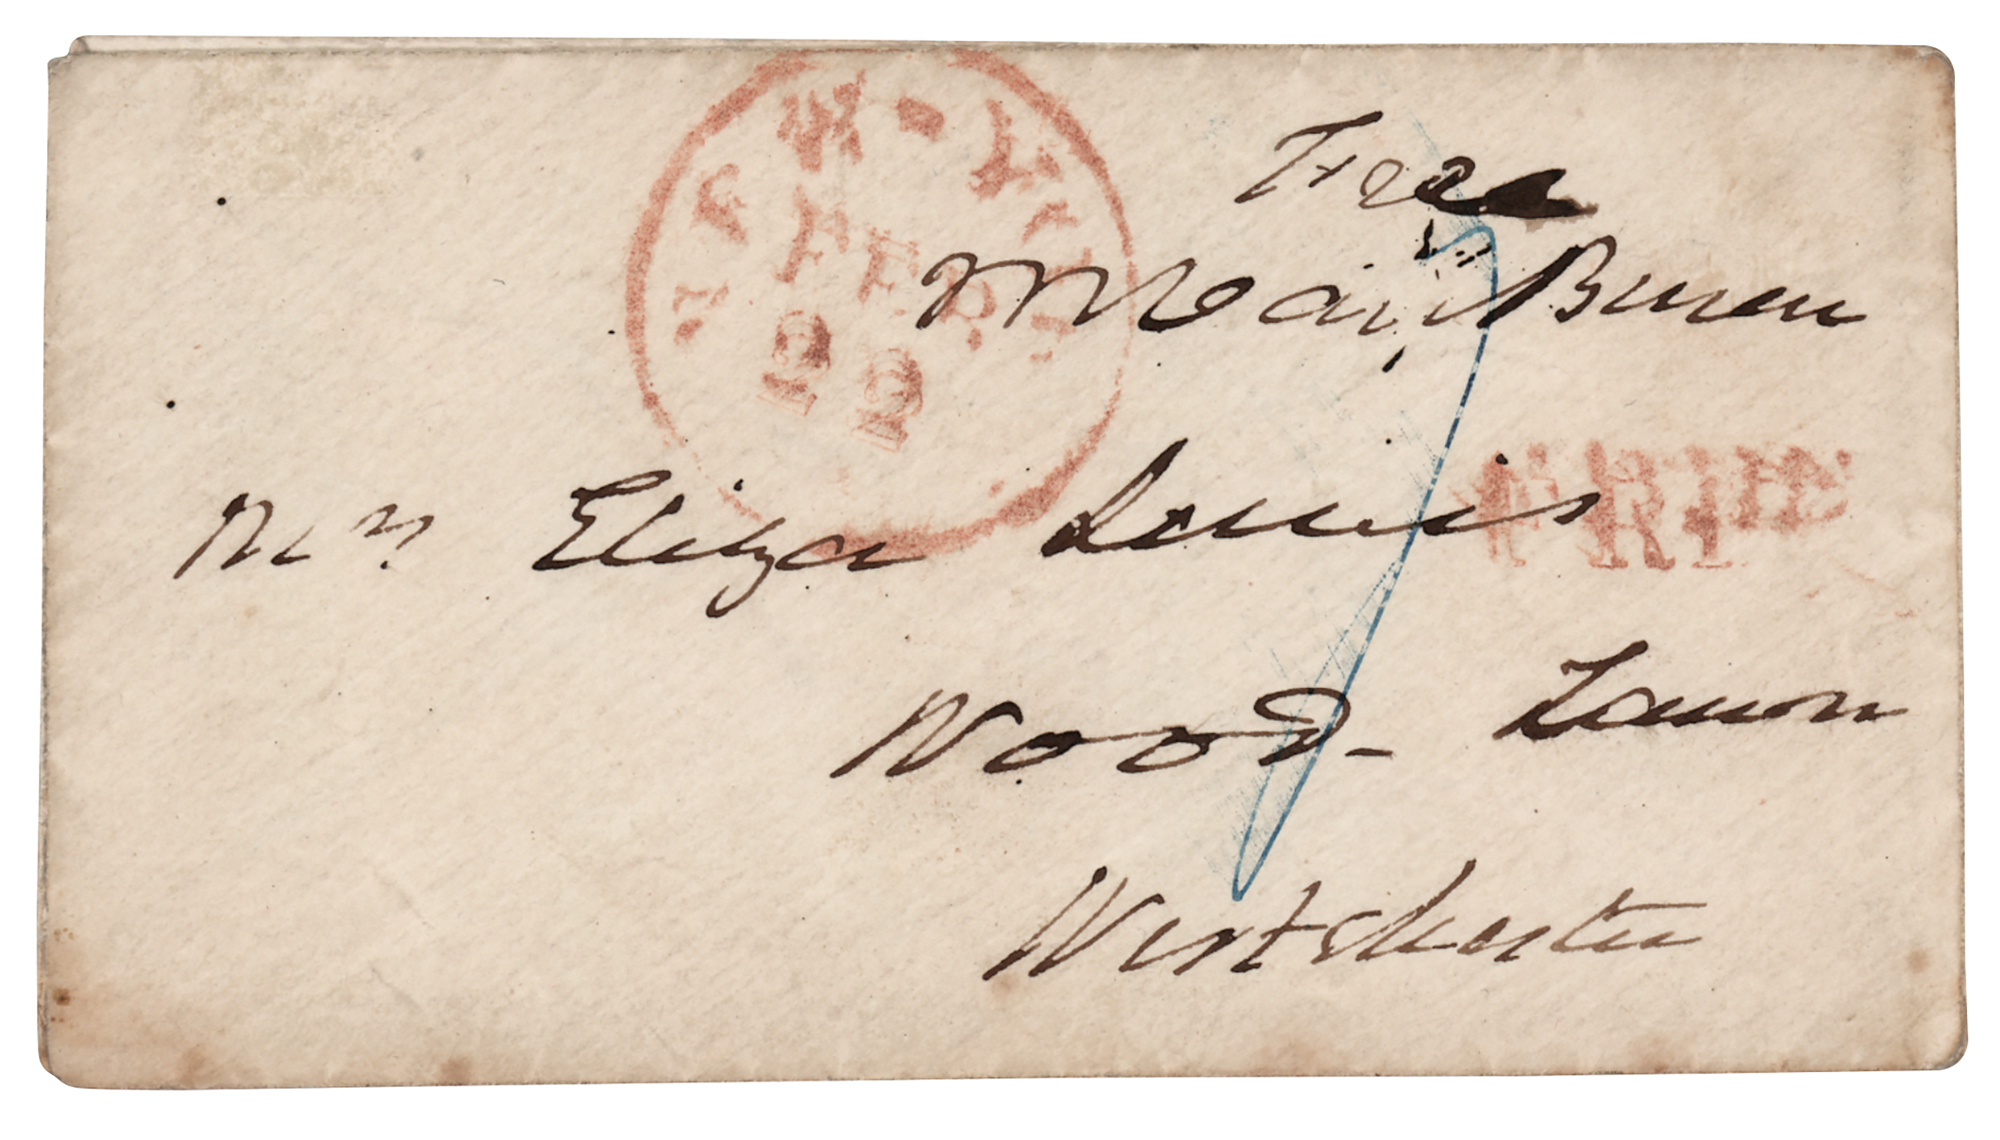 Free
M Van Buren
NEW-YORK
FEB
22
Mrs Eliza Lewis
Wood-Lawn
Westchester